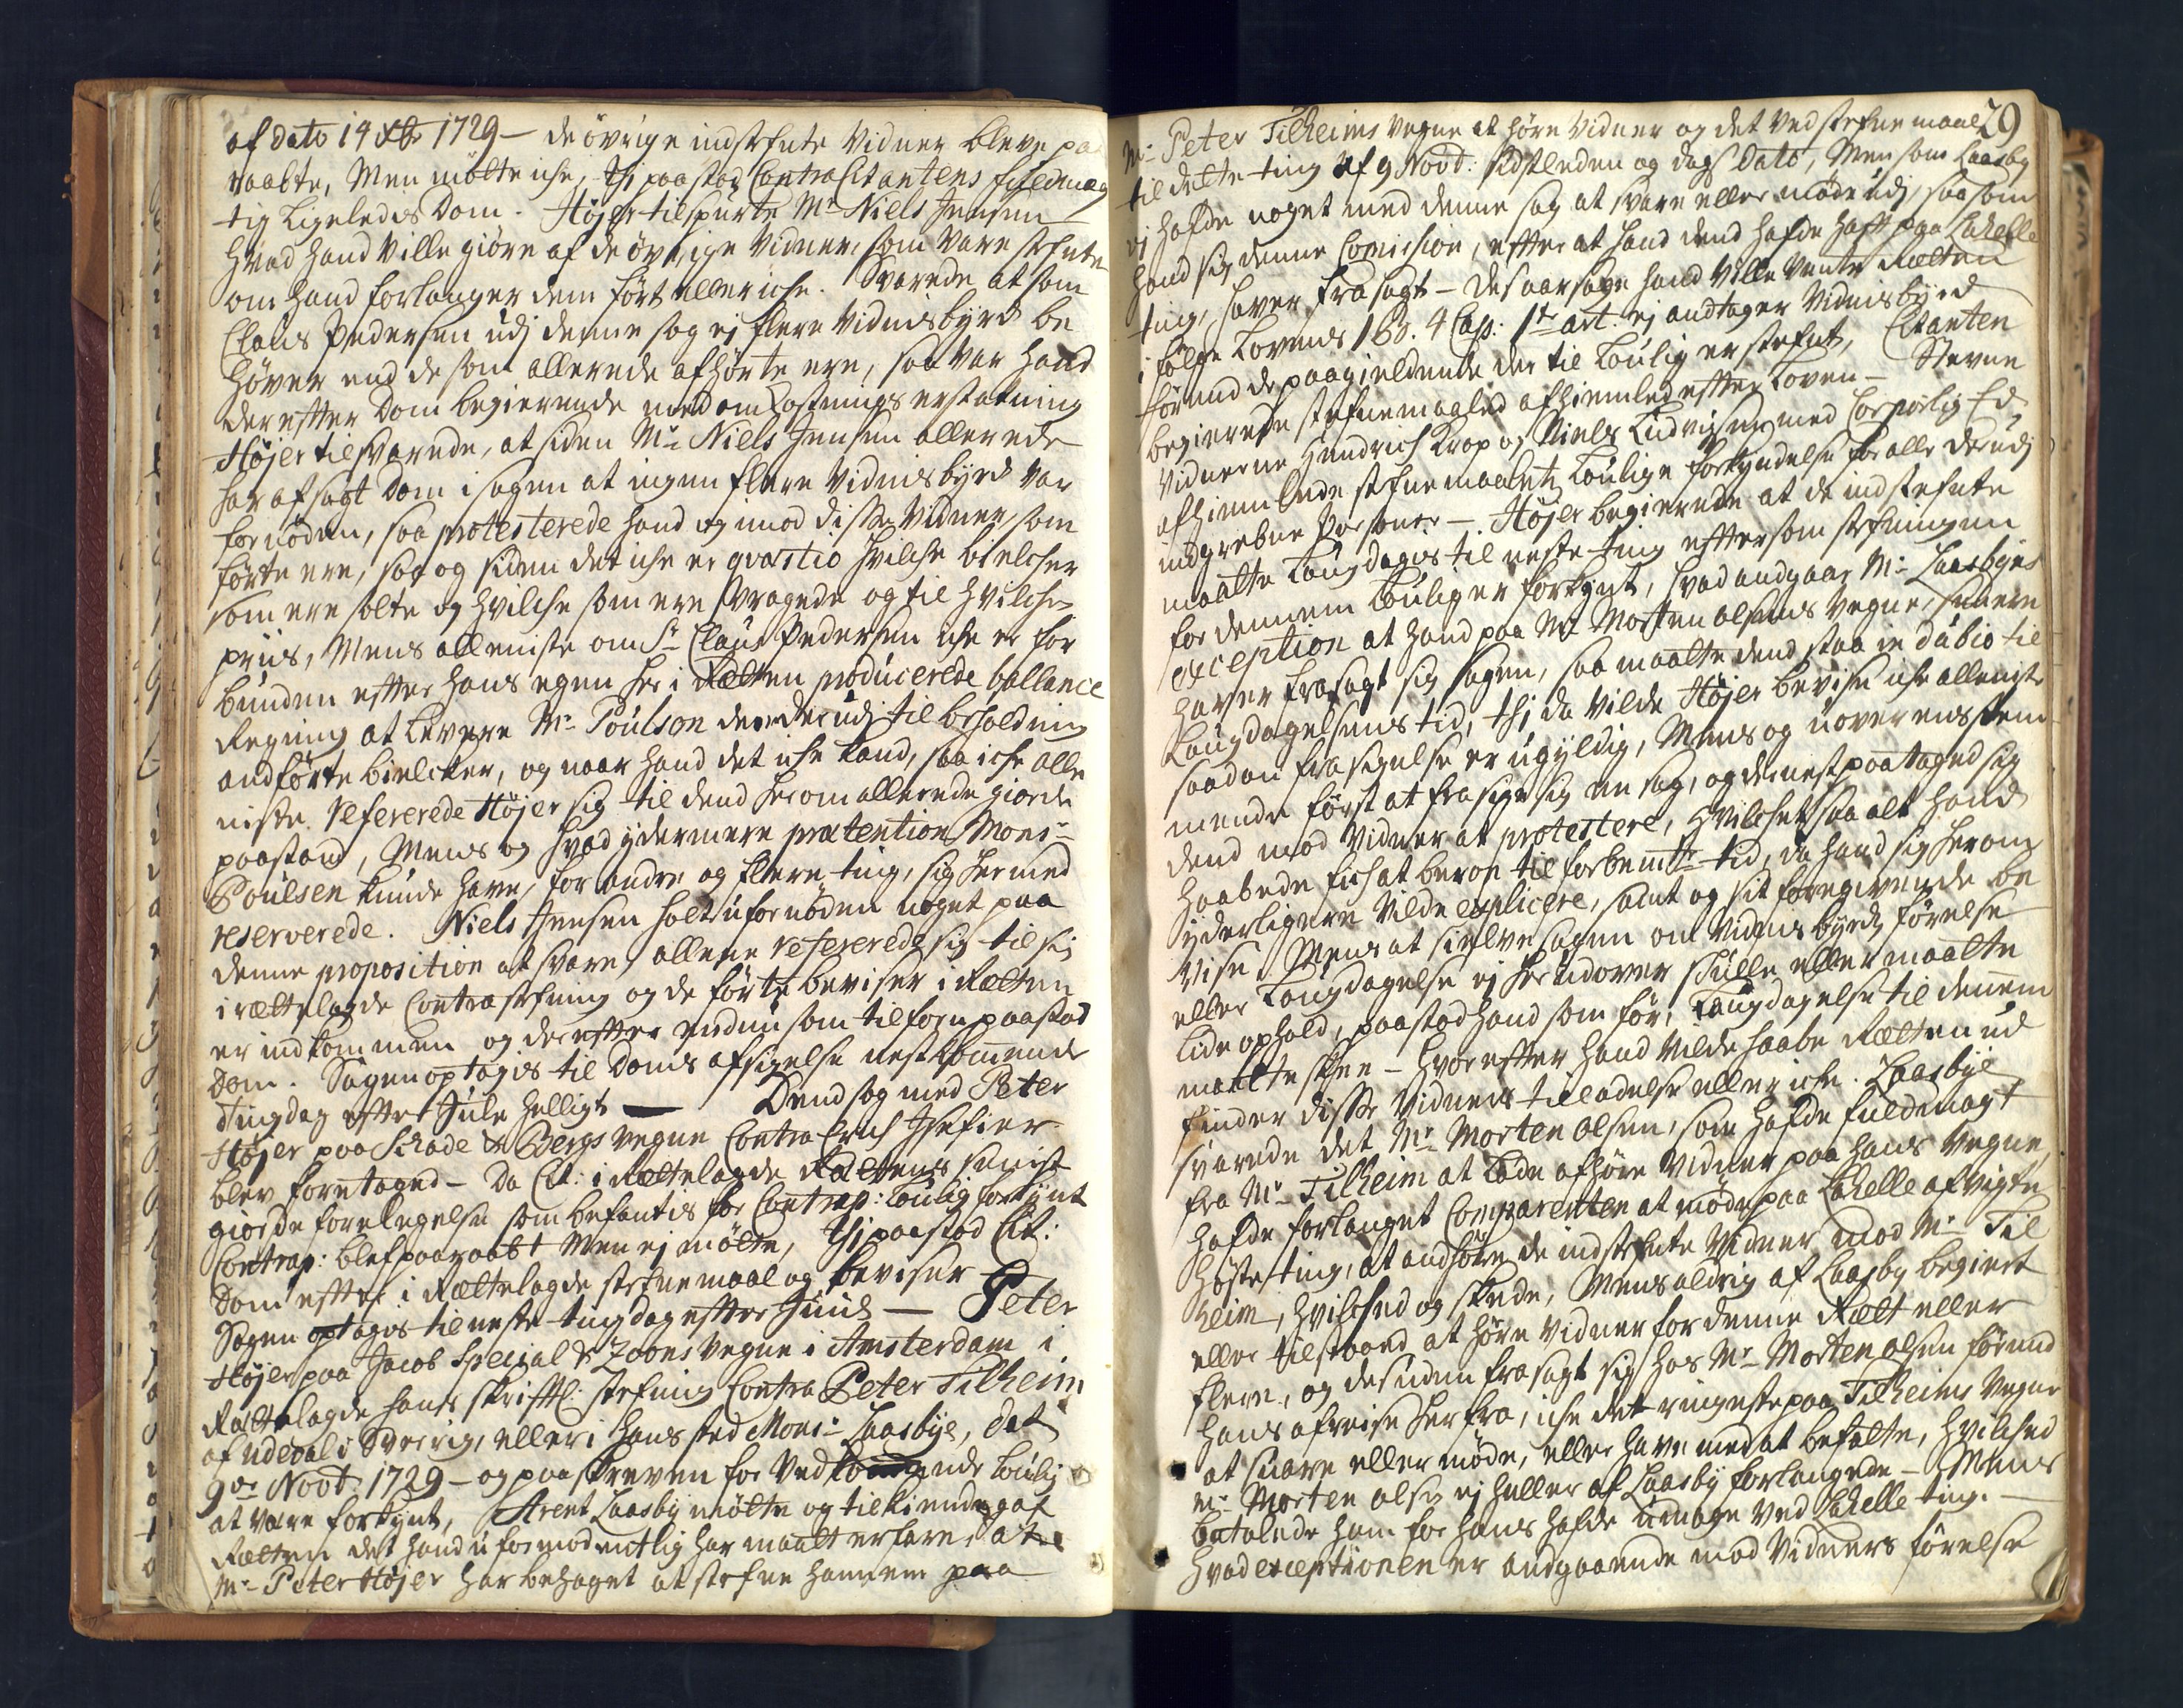 af dato 14 Xbr 1729 — de övrige indstefnte Vidner bleve paa
raabte, Men mötte iche, thj paastod Contra Citantens fuldmæg
tig ligeledis Dom. Höjer tilspurte Mr Niels Jensen
hvad hand ville giöre af de övrige Vidner, som vare stefnte
om hand forlanger dem fört eller iche. Svarede at som
Claus Pedersen udj denne sag ej flere Vidnisbyrd be
höver end de som allerede afhörte ere, saa var hand
derefter Dom begierende med omkostnings erstatning
Höjer tilsvarede, at siden Mr Niels Jensen allerede
har afsagt Dom i sagen at ingen flere Vidnisbyrd var
fornöden, saa protesterede hand og imod disse Vidner, som
förte ere, saa og siden det iche er qvæstio hvilche bielcher
som ere solte og hvilche som ere vragede og til hvilche
priis, Mens alleniste om Sr Claus Pedersen iche er for
bunden efter hans egen her i Rætten producerede ballance
Regning at levere Mr Poulson de derudj til beholdning
andförte bielcker, og naar hand det iche kand, saa iche alle
niste refererede Höjer sig til dend herom allerede giorde
paastand, Mens og hvad ydermere prætention Monsr
Poulsen kunde have, for andre og flere ting, sig hermed
reserverede. Niels Jensen holt ufornöden noget paa
denne proposition at svare, allene refererede sig til sin
i rættelagde Contrastefning og de förte beviser i Rætten
er indkommen og derefter endnu som tilforn paastod
Dom. Sagen optagis til Doms afsigelse nestkomende
tingdag efter Jule helligt — Dend sag med Peter
Höjer paa Schade & Bergs vegne Contra Erich
blev foretaged — Da Cit: i Rættelagde Rættens seniste
giorde forelegelse som befantis for Contrap: loulig forkynt
Contrap: blef paaraabt Men ej mötte, thj paastod Cit:
Dom efter i Rættelagde stefnemaal og beviser
Sagen optagis til neste tingdag efter Juul — Peter
Höjer paa Jacob Special & Zoons vegne i Amsterdam i
Rættelagde hans skriftl: stefning Contra Peter Tilheim
af Udeval i Sverrig, eller i hans sted Monsr Laasbye, dat
9de Novb: 1729 — og paaskreven for Vedkommende loulig
at være forkynt, Arent Laasby mötte og tilkiendegaf
Rætten det hand uformodentlig har maatt erfare, at
Mr Peter Höjer har behaget at stefne hannem paa
29
Mr Peter Tilheims vegne at höre Vidner og det ved stefnemaal
til dette ting af 9 Novb: sidstleden og dags dato, Men som Laasby
ej hafde noget med denne sag at svare eller möde udj, saasom
hand sig denne Comission, efter at hand dend hafde haft paa Lahelle
ting, haver frasagt — Desaarsage hand ville vente Rætten
i fölge Lovens 1 B. 4 Cap: 1te art: ej andtager Vidnisbyrd
förend de paagieldende der til loulig er stefnt, Citanten
begierede stefnemaalet afhiemlet efter Loven — Stevne
Vidnerne Hendrich Krop og Niels Ludvigsen med Corporlig Ed
afhiemlede stefnemaalets loulige forkyndelse for alle derudj
indgrebne Personer — Höjer begierede at de indstefnte
maatte laugdagis til neste ting eftersom stefningen
for dennem loulig er forkynt, hvad andgaar Mr Laasbyes
exception at hand paa Mr Morten Olsens vegne, senere
haver frasagt sig sagen, saa maatte dend staa in dubio til
laugdagelsens tid, thj da vilde Höjer bevise iche alleniste
saadan frasigelse er ugyldig, Mens og uoverensstem
mende först at frasige sig en sag, og dernest paataged sig
dend imod Vidner at protestere, hvilchet saa alt hand
haabede fich at beroe til forbemte tid, da hand sig herom
yderligere vilde explicere, samt og sit foregivende be
vise, Mens at sielve sagen om Vidnisbyrds förelse
eller laugdagelse ej herudover skulle eller maatte
lide ophold, paastod hand som för, laugdagelse til dennem
maatte skee — hvorefter hand vilde haabe Rætten ud
finder disse Vidners tiladelse eller iche. Laasbye
svarede det Mr Morten Olsen, som hafde fuldmagt
fra Mr Tilheim at lade afhöre Vidner paa hans vegne,
hafde forlanget Comparenten at möde paa Lahelle afvigte
höste ting, at andhöre de indstefnte Vidner imod Mr Til
heim, hvilched og skede, Mens aldrig af Laasby begiert
eller tilstaaed at höre Vidner for denne Rætt eller
flere, og desuden frasagt sig hos Mr Morten Olsen förend
hans afreise herfra, iche det ringeste paa Tilheims vegne
at svare eller möde, eller have med at befatte, hvilched
Mr Morten Olsen ej heller af Laasby forlangede — Mens
betalede ham for hans hafde umage ved Lahelle ting. —
hvad exceptionen er andgaaende imod Vidners förelse